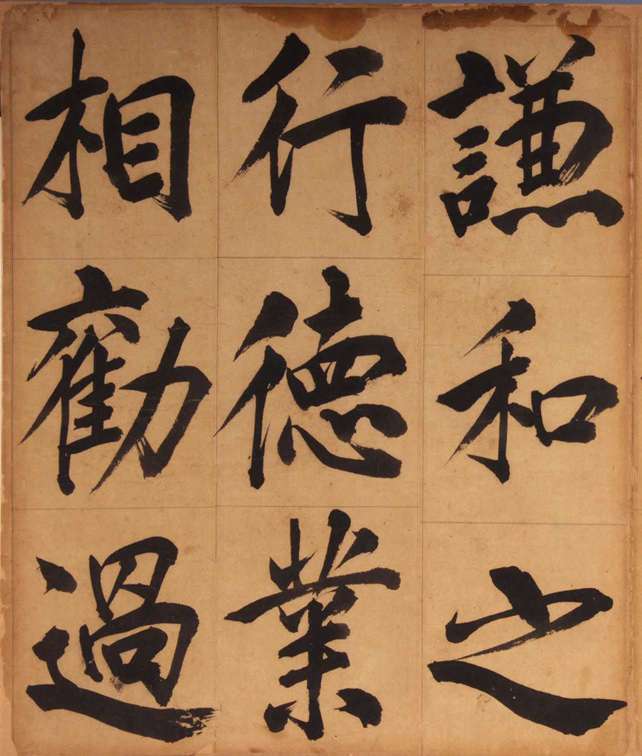 謙和之
行德業
相勸過